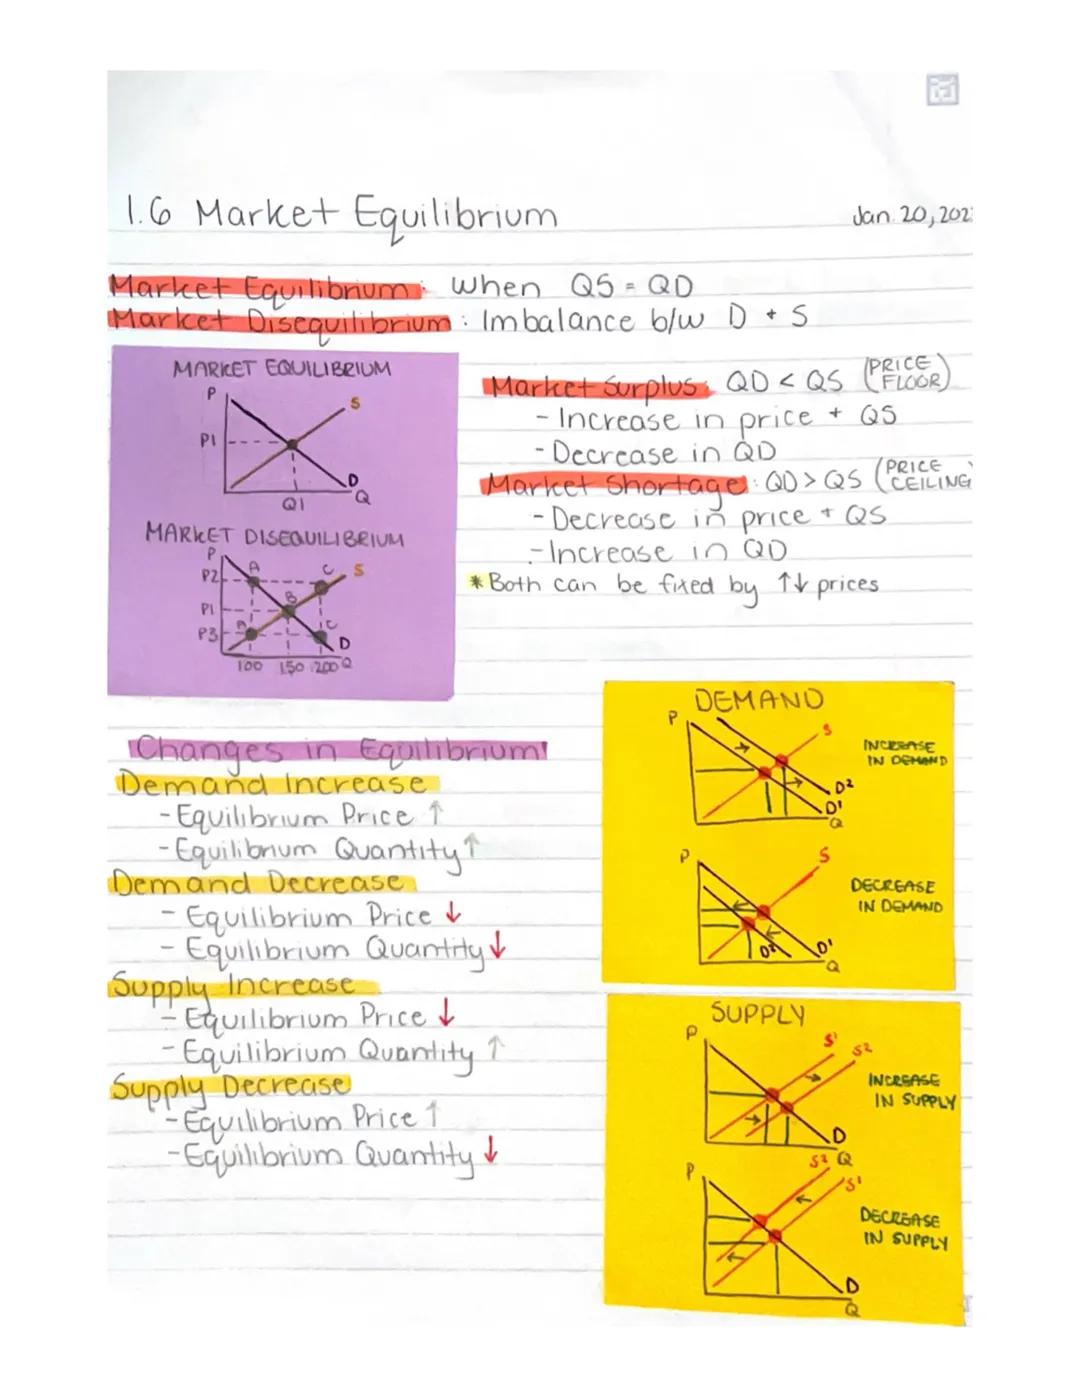 1.6 Market Equilibrium
Jan. 20, 202
Market Equilibrium: When QS = QD
Market Disequilibrium: Imbalance b/w D + S
MARKET EQUILIBRIUM
P
S
P1
D
Q1
Q
MARKET DISEQUILIBRIUM
P
P2
A
C
S
P1
B
P3
A
C
D
100 150 200 Q
Market Surplus: QD < QS (PRICE FLOOR)
- Increase in price + QS
- Decrease in QD
Market Shortage: QD > QS (PRICE CEILING
- Decrease in price + QS
- Increase in QD
* Both can be fixed by ↑↓ prices
Changes in Equilibrium
Demand Increase
- Equilibrium Price ↑
- Equilibrium Quantity ↑
Demand Decrease
- Equilibrium Price ↓
- Equilibrium Quantity ↓
Supply Increase
- Equilibrium Price ↓
- Equilibrium Quantity ↑
Supply Decrease
- Equilibrium Price ↑
- Equilibrium Quantity ↓
DEMAND
P
S
INCREASE
IN DEMAND
D²
D¹
Q
P
S
DECREASE
IN DEMAND
D²
D¹
Q
SUPPLY
P
S¹
S²
INCREASE
IN SUPPLY
D
Q
P
S²
S¹
DECREASE
IN SUPPLY
D
Q